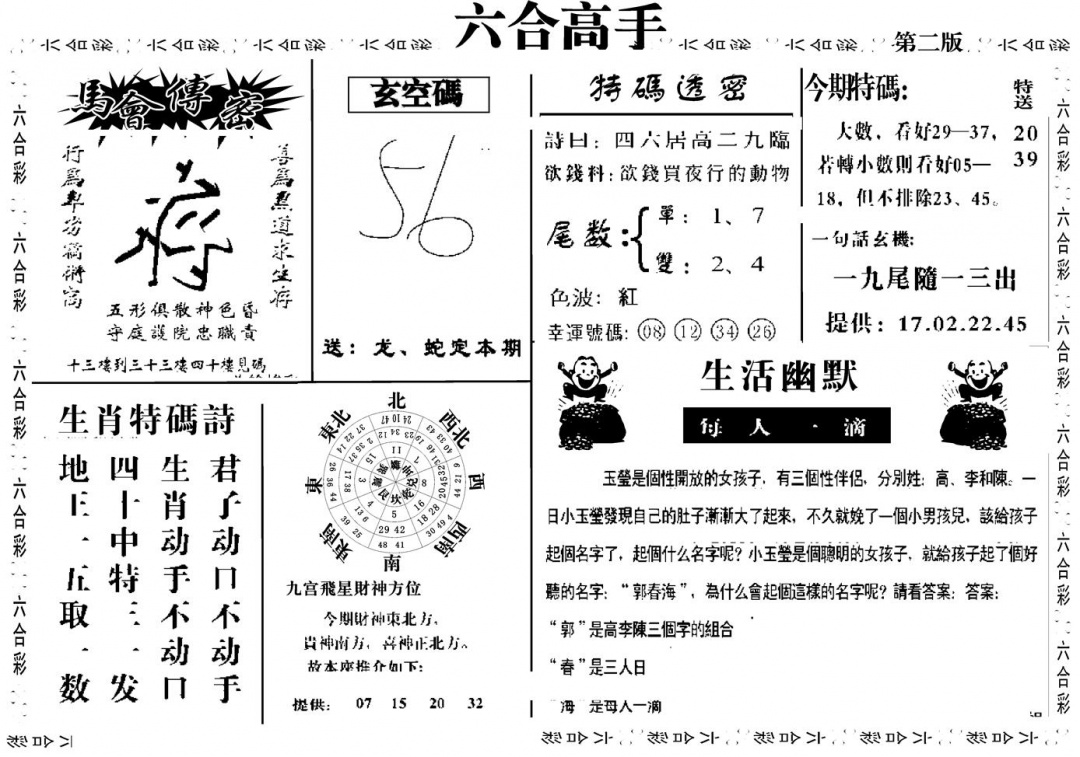 六合高手
第二版
馬會傳密
行為卑劣竊術高
善為無道求生存
五形俱散神色昏
守庭護院忠職責
十三樓到三十三樓四十樓見碼
玄空碼
送：龙、蛇定本期
特碼透密
詩曰：四六居高二九臨
欲錢料：欲錢買夜行的動物
尾数：
單：1、7
雙：2、4
色波：紅
幸運號碼：08 12 34 26
今期特碼:
特送
20
39
大數，看好29—37，
若轉小數則看好05—
18，但不排除23、45。
一句話玄機:
一九尾隨一三出
提供：17.02.22.45
生肖特碼詩
君子动口不动手
生肖动手不动口
四十中特三一发
地王一五取一数
北
東北
西北
東
西
東南
西南
南
九宮飛星財神方位
今期財神東北方,
貴神南方、喜神正北方。
故本座推介如下:
提供: 07 15 20 32
生活幽默
每人一滴
玉瑩是個性開放的女孩子，有三個性伴侶，分別姓：高、李和陳。一
日小玉瑩發現自己的肚子漸漸大了起來，不久就娩了一個小男孩兒，該給孩子
起個名字了，起個什么名字呢？小玉瑩是個聰明的女孩子，就給孩子起了個好
聽的名字：“郭春海”，為什么會起個這樣的名字呢？請看答案：答案：
“郭”是高李陳三個字的組合
“春”是三人日
海 是每人一滴
六合彩